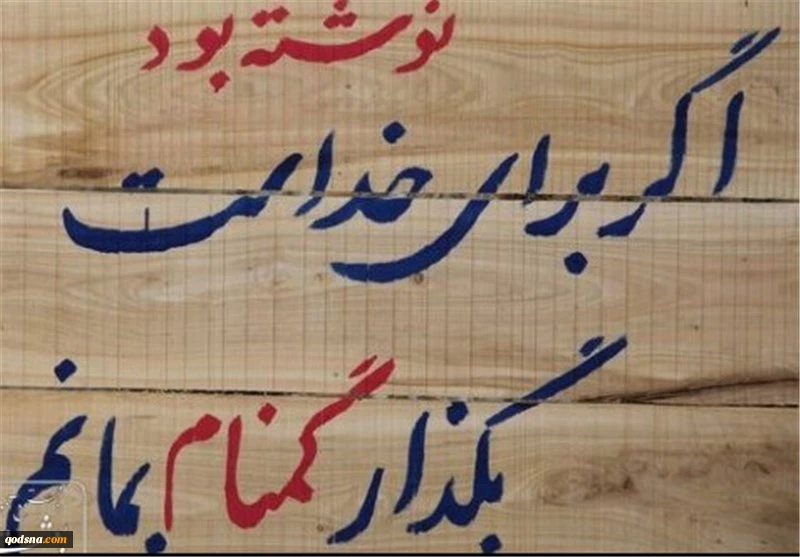 نوشته بود
اگر برای خداست
بگذار گمنام بمانم
qodsna.com